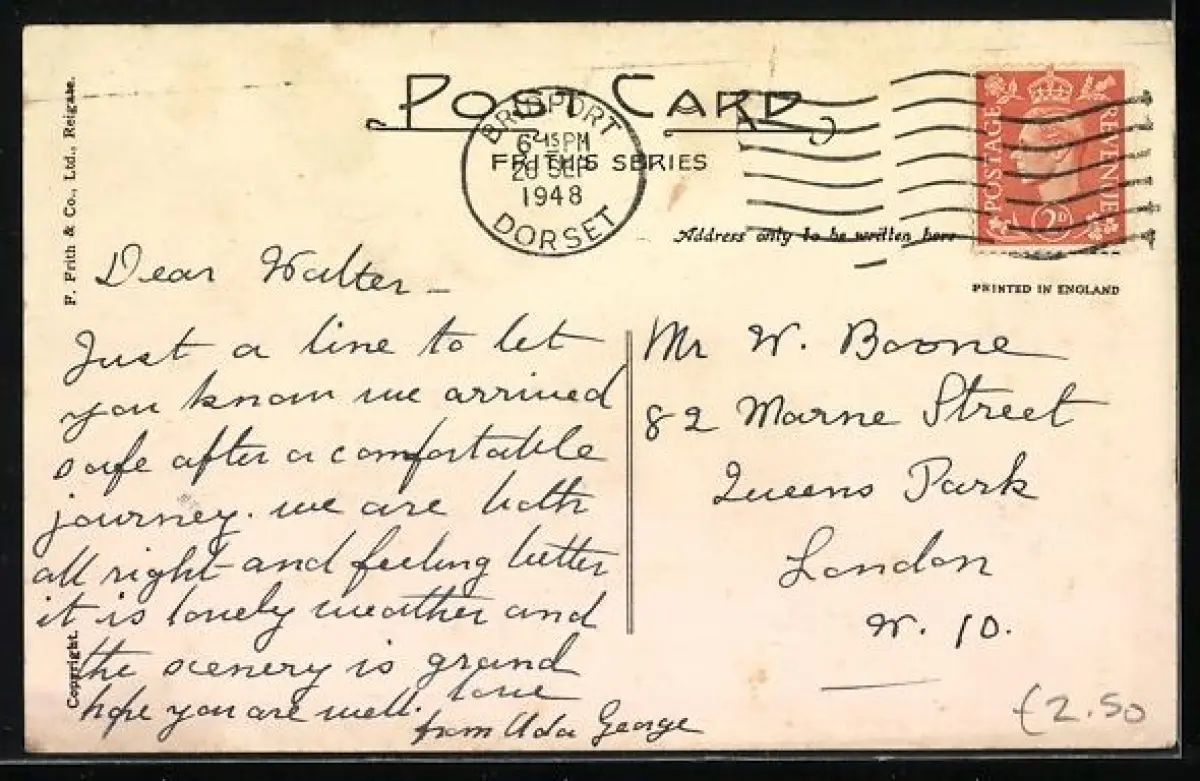 POST CARD
FRITH'S SERIES
BRIDPORT
6 15 PM
20 SEP
1948
DORSET
POSTAGE
REVENUE
2D
Address only to be written here
PRINTED IN ENGLAND
F. Frith & Co., Ltd., Reigate.
Copyright.
Dear Walter –
Just a line to let
you know we arrived
safe after a comfortable
journey. we are both
all right and feeling better
it is lovely weather and
the scenery is grand
hope you are well. love
from Ada George
Mr W. Boone
82 Marne Street
Queens Park
London
W. 10.
£2.50